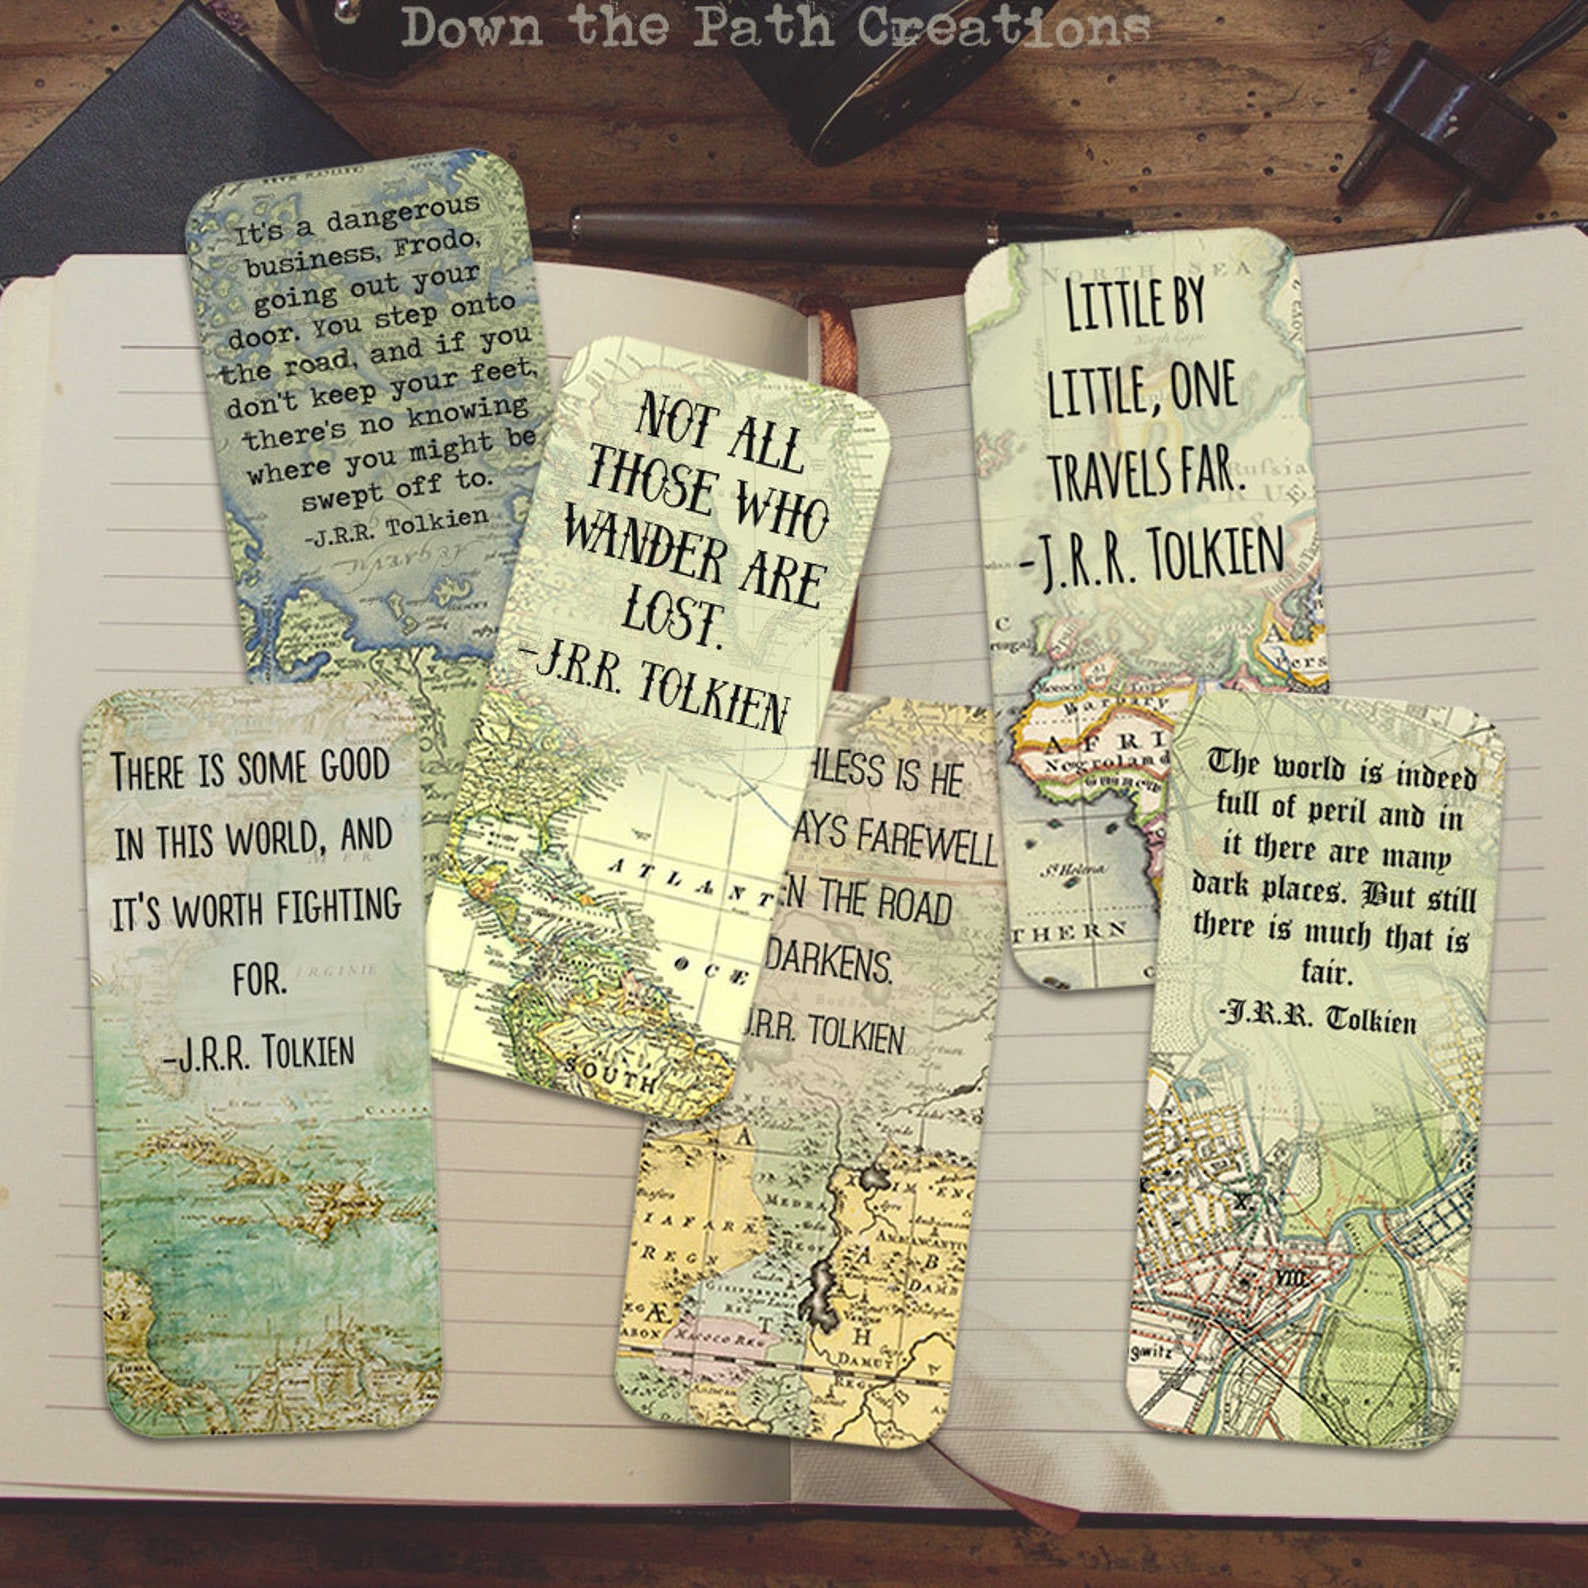 Down the Path Creations
It's a dangerous
business, Frodo,
going out your
door. You step onto
the road, and if you
don't keep your feet,
there's no knowing
where you might be
swept off to.
-J.R.R. Tolkien
NOT ALL
THOSE WHO
WANDER ARE
LOST.
-J.R.R. TOLKIEN
ATLANT
OCE
SOUTH
NORTH SEA
LITTLE BY
LITTLE, ONE
TRAVELS FAR.
-J.R.R. TOLKIEN
Russia
Barbary
AFRI
Negroland
Guinea
St Helena
THERN
THERE IS SOME GOOD
IN THIS WORLD, AND
IT'S WORTH FIGHTING
FOR.
-J.R.R. TOLKIEN
VIRGINIE
HLESS IS HE
AYS FAREWELL
EN THE ROAD
DARKENS.
J.R.R. TOLKIEN
MEDRA
IAFARÆ
REGN
MACOCO REG
DAMUT
The world is indeed
full of peril and in
it there are many
dark places. But still
there is much that is
fair.
-J.R.R. Tolkien
X.
VIII.
gwitz